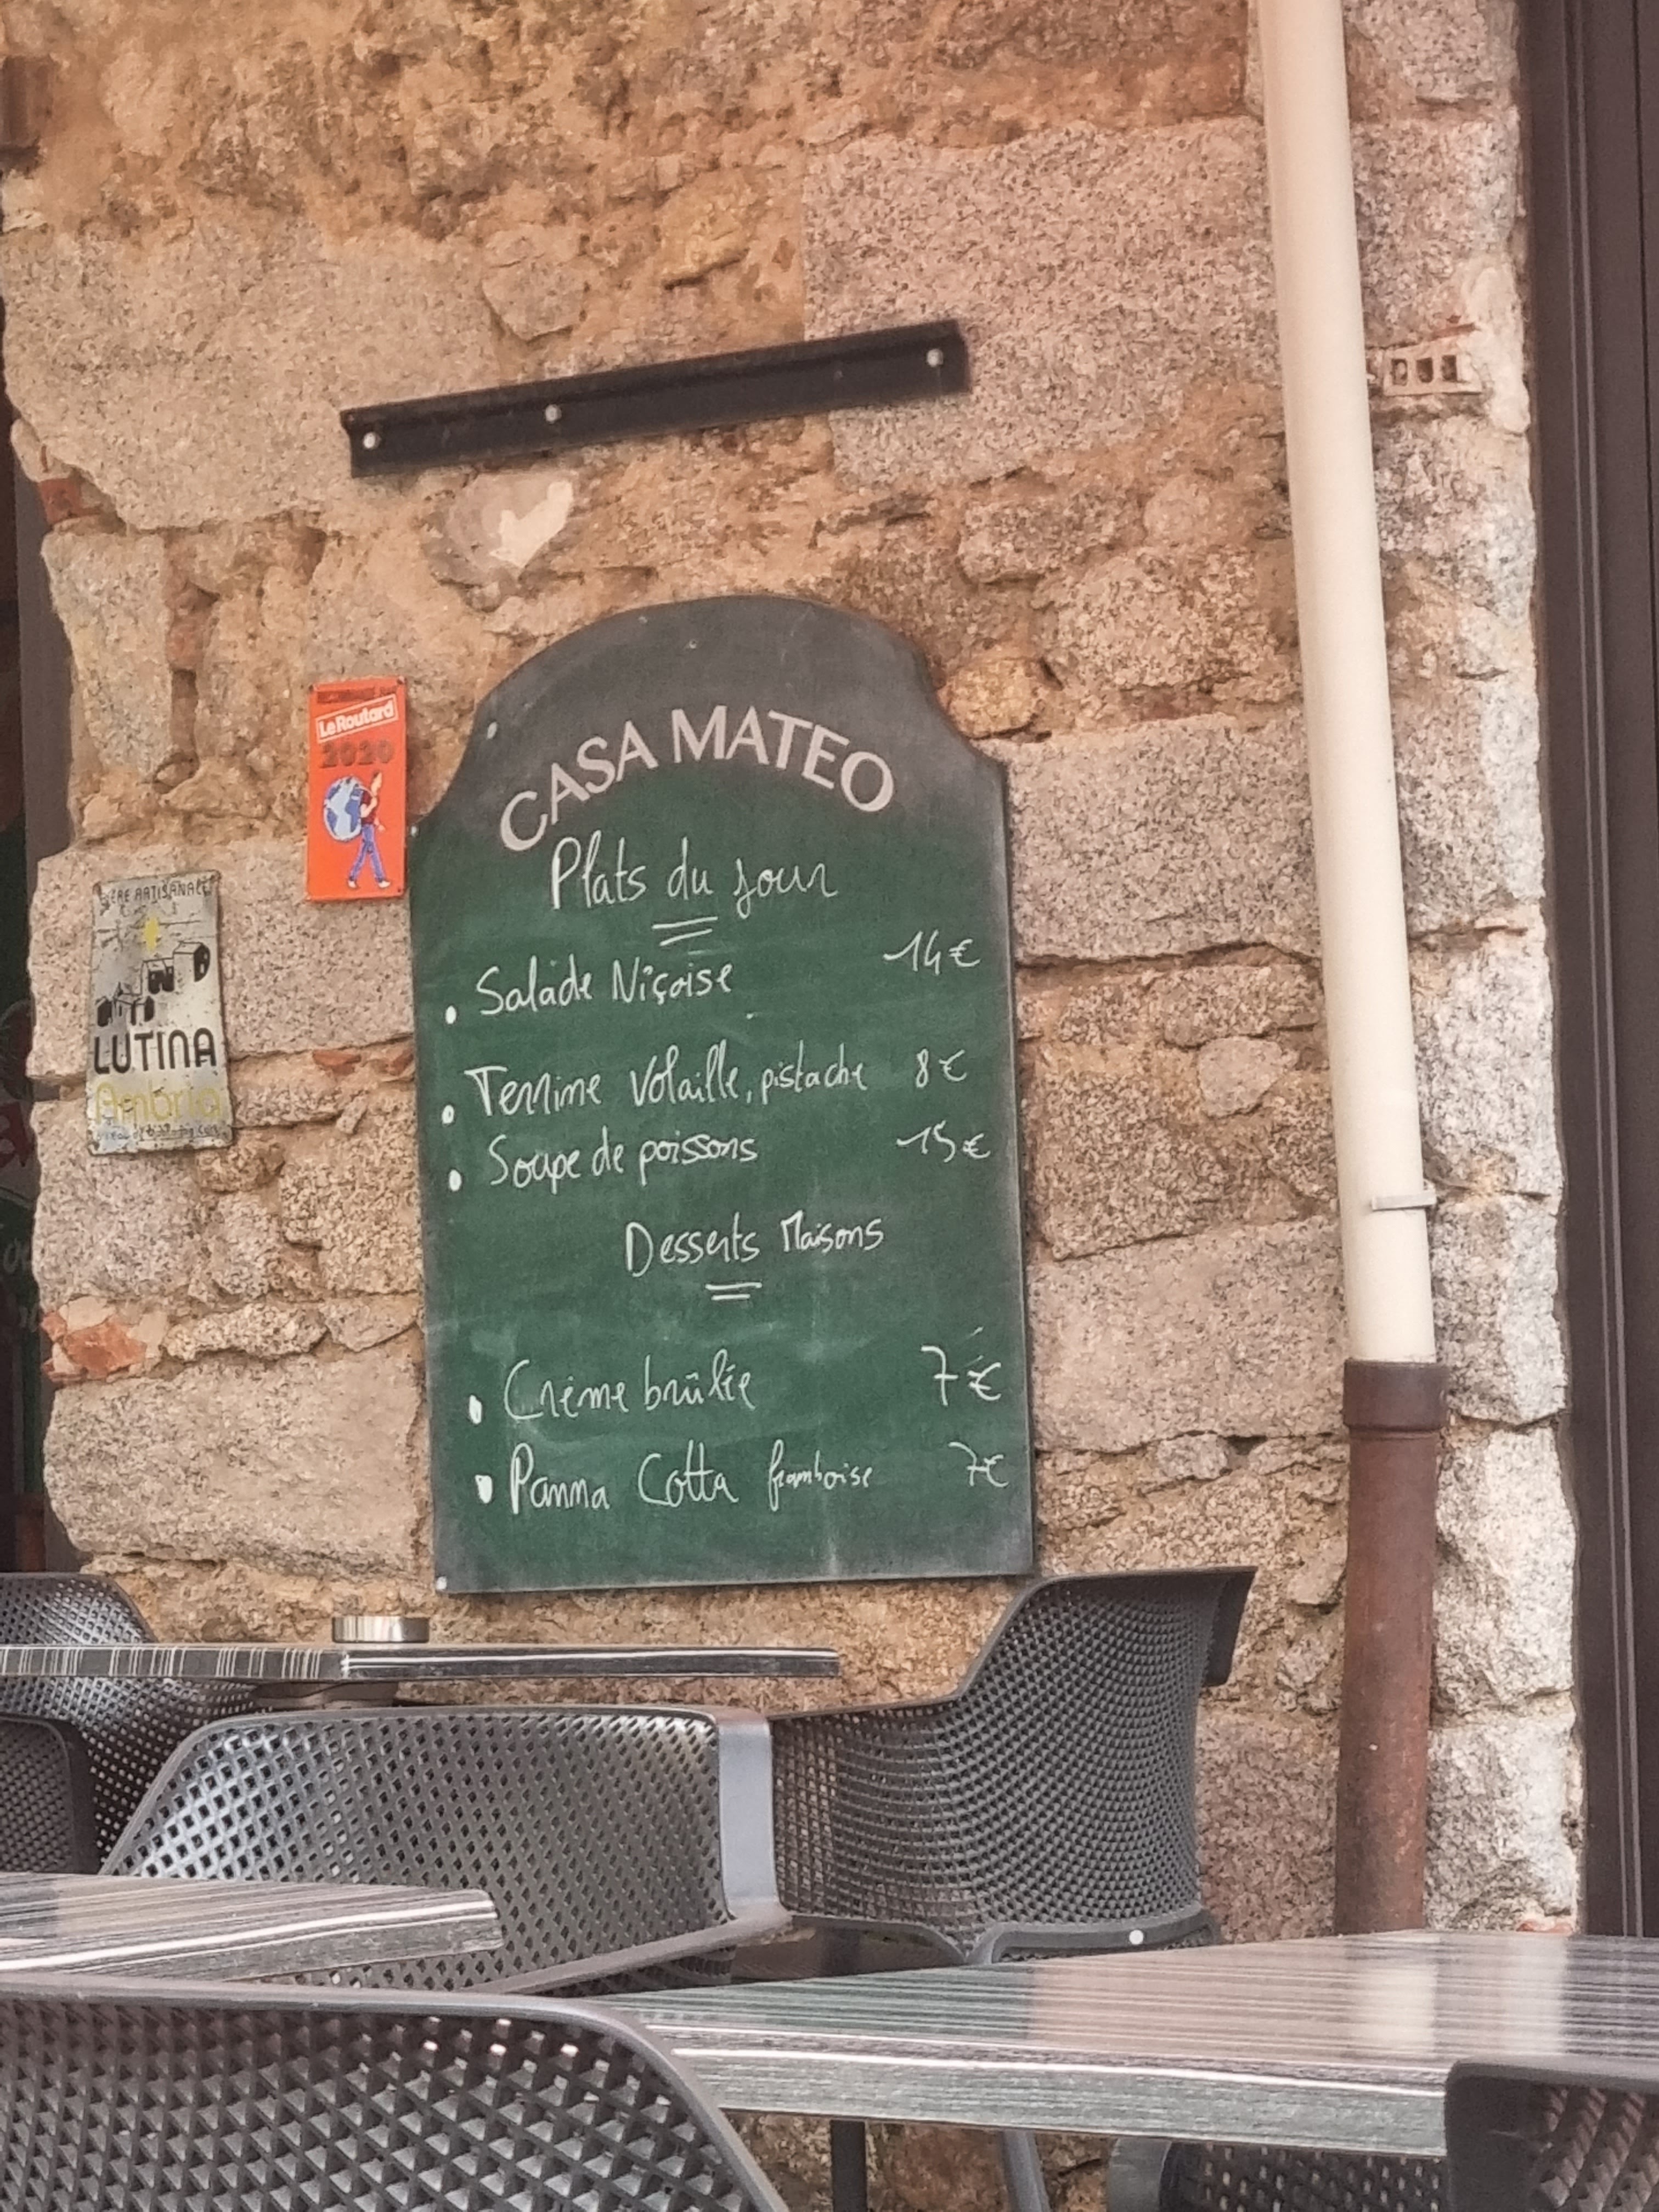 CASA MATEO
Plats du jour
Salade Niçoise 14€
Terrine Volaille, pistache 8€
Soupe de poissons 15€
Desserts Maisons
Crème brûlée 7€
Panna Cotta framboise 7€
Le Routard
2020
LUTINA
Ambria